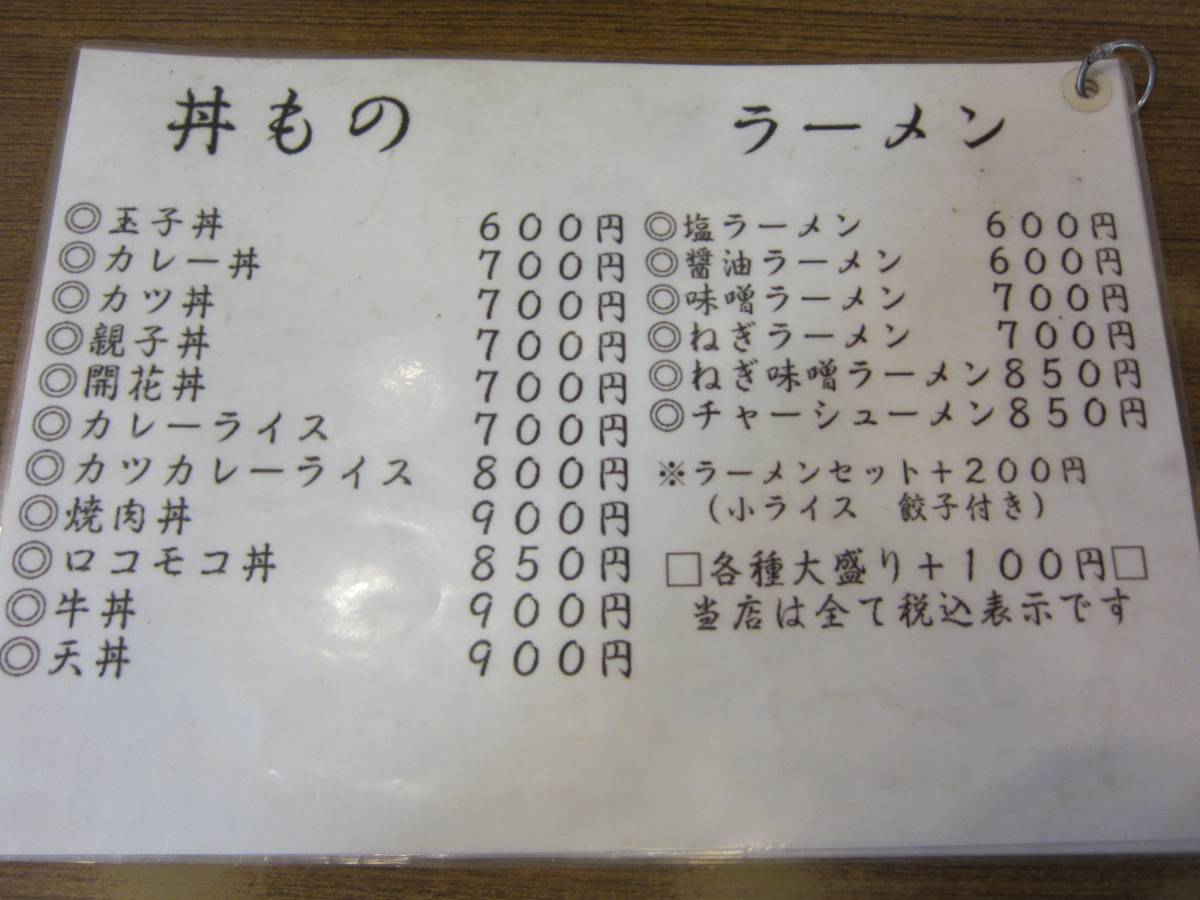 丼もの
◎玉子丼 600円
◎カレー丼 700円
◎カツ丼 700円
◎親子丼 700円
◎開花丼 700円
◎カレーライス 700円
◎カツカレーライス 800円
◎焼肉丼 900円
◎ロコモコ丼 850円
◎牛丼 900円
◎天丼 900円
ラーメン
◎塩ラーメン 600円
◎醤油ラーメン 600円
◎味噌ラーメン 700円
◎ねぎラーメン 700円
◎ねぎ味噌ラーメン 850円
◎チャーシューメン 850円
※ラーメンセット+200円
(小ライス 餃子付き)
□各種大盛り+100円□
当店は全て税込表示です